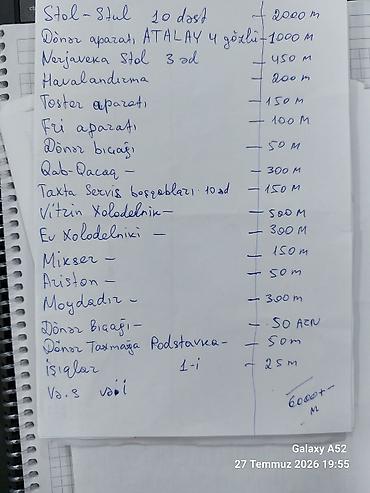 Stol - Stul 10 dəst - 2000 M
Dönər aparatı ATALAY 4 gözlü - 1000 M
Nerjaveka Stol 3 əd - 450 M
Havalandırma - 200 M
Toster aparatı - 150 M
Fri aparatı - 100 M
Dönər bıçağı - 50 M
Qab-Qacaq - - 300 M
Taxta Servis boşqabları 10 əd - 150 M
Vitrin Xolodelnik - - 500 M
Ev Xolodelniki - - 300 M
Mikser - - 150 M
Ariston - - 50 M
Moydadır - - 300 M
Dönər Bıçağı - - 50 AZN
Dönər Taxmağa Podstavka - - 50 M
işıqlar 1-i - 25 M
Və.s
6000+-
M
Galaxy A52
27 Temmuz 2026 19:55